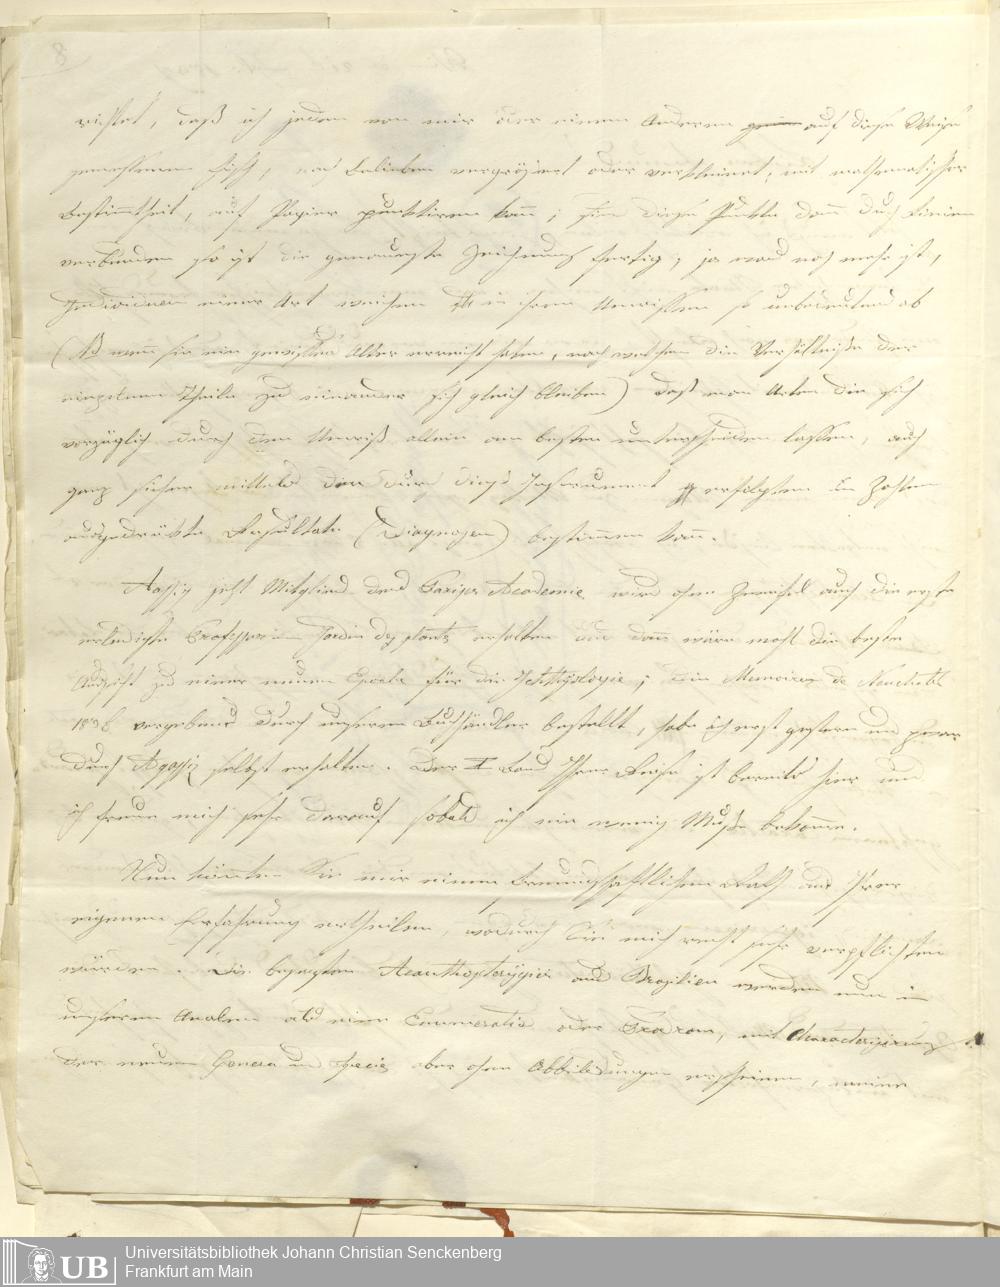 8
richtet, daß ich jeden von mir oder einem Anderen auf diese Weise
gemessenen Fisch, nach Belieben vergrößert oder verkleinert, mit mathematischer
Bestimtheit, auf Papier punktiren kann; sind diese Punkte dann durch Linien
verbunden so ist die genaueste Zeichnung fertig; ja was noch mehr ist,
Individuen einer Art weichen in ihren Umrissen so unbedeutend ab
(ß wenn sie ein gewisses Alter erreicht haben, nach welchem die Verhältnisse der
einzelnen Theile zu einander sich gleich bleiben) daß man Arten die sich
vorzüglich durch den Umriß allein am besten unterscheiden lassen, auch
ganz sicher mittels der durch dieß Instrument erfolgten in Zahlen
ausgedrükte Resultate (Diagnosen) bestimmen kann.
Agassiz jetzt Mitglied der Pariser Academie wird ohne Zweifel auch die erste
erledigte Professur im Jardin des plants erhalten und dann wäre wohl die beste
Aussicht zu einer neuen Epoche für die Ichthyologie; die Memoires de Neuchatel
vergebens durch unseren Buchhändler bestellt, habe ich erst gestern und zwar
durch Agassiz selbst erhalten. Der I Band Ihrer Reise ist bereits hier und
ich freue mich sehr darauf sobald ich ein wenig Muße bekomme.
Nun könnten Sie mir einen freundschaftlichen Rath aus Ihrer
eigenen Erfahrung ertheilen, wodurch Sie mich recht sehr verpflichten
würden. Die besagten Acanthopterygier aus Brasilien werden nun in
unseren Analen als eine Enumeratio oder Prodrom, mit Characterisirung
der neuen Genera und Species aber ohne Abbildungen erscheinen, meine
UB Universitätsbibliothek Johann Christian Senckenberg
Frankfurt am Main